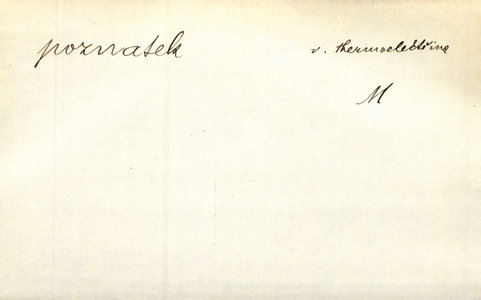 poznatek
v. thermoelektřina
M